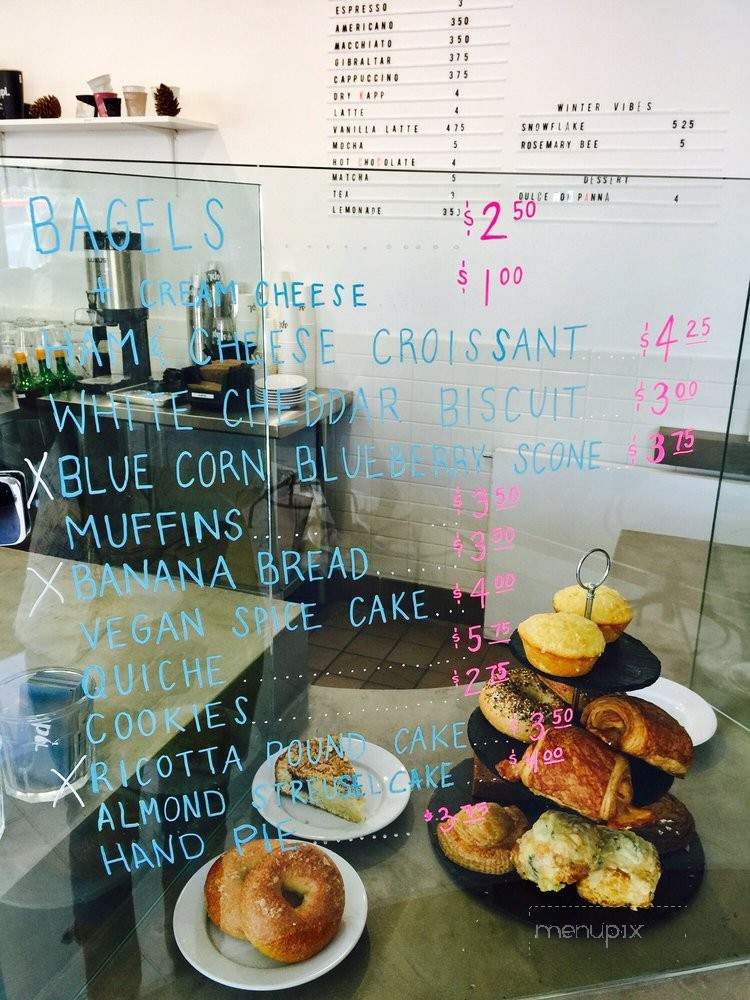 ESPRESSO 3
AMERICANO 350
MACCHIATO 350
GIBRALTAR 375
CAPPUCCINO 375
DRY KAPP 4
LATTE 4
VANILLA LATTE 475
MOCHA 5
HOT CHOCOLATE 4
MATCHA 5
TEA 3
LEMONADE 353
WINTER VIBES
SNOWFLAKE 525
ROSEMARY BEE 5
DESSERT
DULCE PANNA 4
BAGELS $2 50
+ CREAM CHEESE $1 00
HAM & CHEESE CROISSANT $4 25
WHITE CHEDDAR BISCUIT $3 00
X BLUE CORN BLUEBERRY SCONE $3 75
MUFFINS $3 50
X BANANA BREAD $3 50
VEGAN SPICE CAKE $4 00
QUICHE $5 75
COOKIES $2 75
X RICOTTA POUND CAKE $3 50
ALMOND STREUSEL CAKE $4 00
HAND PIE $3 75
menupix